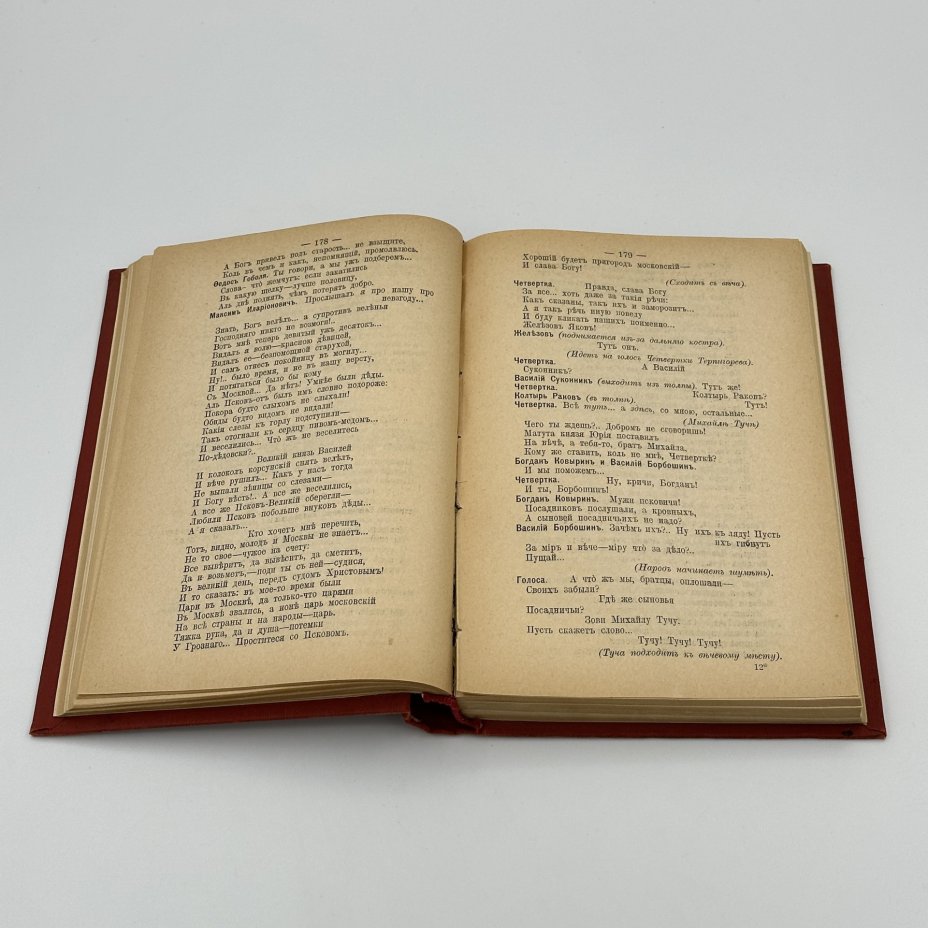 — 178 —
А Богъ привелъ подъ старость... не взыщите,
Коль въ чемъ я какъ, непомнящій, промолвлюсь.
Ѳедосъ Гоболя. Ты говори, а мы ужъ подберемъ...
Слова—что жемчугъ: если закатились
Въ какую щелку—лучше половицу,
Аль двѣ поднять, чѣмъ потерять добро.
Максимъ Иларіоновичъ. Прослышалъ я про нашу про
невзгоду...
Знать, Богъ велѣлъ... а супротивъ велѣнья
Господняго никто не возмоги!..
Вотъ мнѣ теперь девятый ужъ десятокъ...
Видалъ я волю—красною дѣвицей,
Видалъ ее—безпомощной старухой,
И самъ отнесъ покойницу въ могилу...
Ну!.. было время, и не въ нашу версту,
И потягаться было бы кому
Съ Москвой... Да нѣтъ! Умнѣе были дѣды.
Аль Псковъ-отъ былъ имъ словно подороже:
Покора будто слыхомъ не слыхали!
Обиды будто видомъ не видали!
Какія слезы къ горлу подступили—
Такъ отогнали къ сердцу пивомъ-медомъ...
И веселились... Что жъ не веселитесь
По-дѣдовски?..
Великій князь Василей
И колоколъ корсунскій снять велѣлъ,
И вѣче рушилъ... Какъ у насъ тогда
Не выпали зѣницы со слезами—
И Богу вѣсть!.. А все же веселились,
А все же Псковъ-Великій сберегли—
Любили Псковъ побольше внуковъ дѣды...
А я сказалъ...
Кто хочетъ мнѣ перечить,
Тотъ, видно, молодъ и Москвы не знаетъ...
Не то свое—чужое на счету:
Все вывѣритъ, да вывѣситъ, да смѣтитъ,
Да и возьметъ,—поди ты съ ней—судися,
Въ великій день, передъ судомъ Христовымъ!
И то сказать: въ мое-то время были
Цари въ Москвѣ, да только-что царями
Въ Москвѣ звались, а нонѣ царь московскій
На всѣ страны и на народы—царь.
Тяжка рука, да и душа—потемки
У Грознаго... Проститеся со Псковомъ.
— 179 —
Хорошій будетъ пригородъ московскій—
И слава Богу!
(Сходитъ съ вѣча).
Четвертка. Правда, слава Богу
За все... хоть даже за такія рѣчи:
Какъ сказаны, такъ ихъ и заморозитъ...
А я такъ рѣчь иную поведу
И буду кликать нашихъ поименно...
Желѣзовъ Яковъ!
Желѣзовъ (поднимается изъ-за дальняго костра).
Тутъ онъ.
(Идетъ на голосъ Четвертки Терпигорева).
Четвертка. А Василій
Суконникъ?
Василій Суконникъ (выходитъ изъ толпы). Тутъ же!
Четвертка. Колтырь Раковъ?
Колтырь Раковъ (въ толпѣ). Тутъ!
Четвертка. Всѣ тутъ... а здѣсь, со мною, остальные...
(Михайлѣ Тучѣ)
Чего ты ждешь?.. Добромъ не сговоришь!
Матута князя Юрія поставилъ
На вѣчѣ, а тебя-то, братъ Михайла,
Кому же ставить, коль не мнѣ, Четверткѣ?
Богданъ Ковыринъ и Василій Борбошинъ.
И мы поможемъ...
Четвертка. Ну, кричи, Богданъ!
И ты, Борбошинъ!
Богданъ Ковыринъ. Мужи псковичи!
Посадниковъ послушали, а кровныхъ,
А сыновей посадничьихъ не надо?
Василій Борбошинъ. Зачѣмъ ихъ?.. Ну ихъ къ ляду! Пусть
ихъ гибнутъ
За міръ и вѣче—міру что̀ за дѣло?..
Пущай...
(Народъ начинаетъ шумѣть).
Голоса. А что̀ жъ мы, братцы, оплошали—
Своихъ забыли?
Гдѣ же сыновья
Посадничьи?
Зови Михайлу Тучу.
Пусть скажетъ слово...
Тучу! Тучу! Тучу!
(Туча подходитъ къ вѣчевому мѣсту).
12*